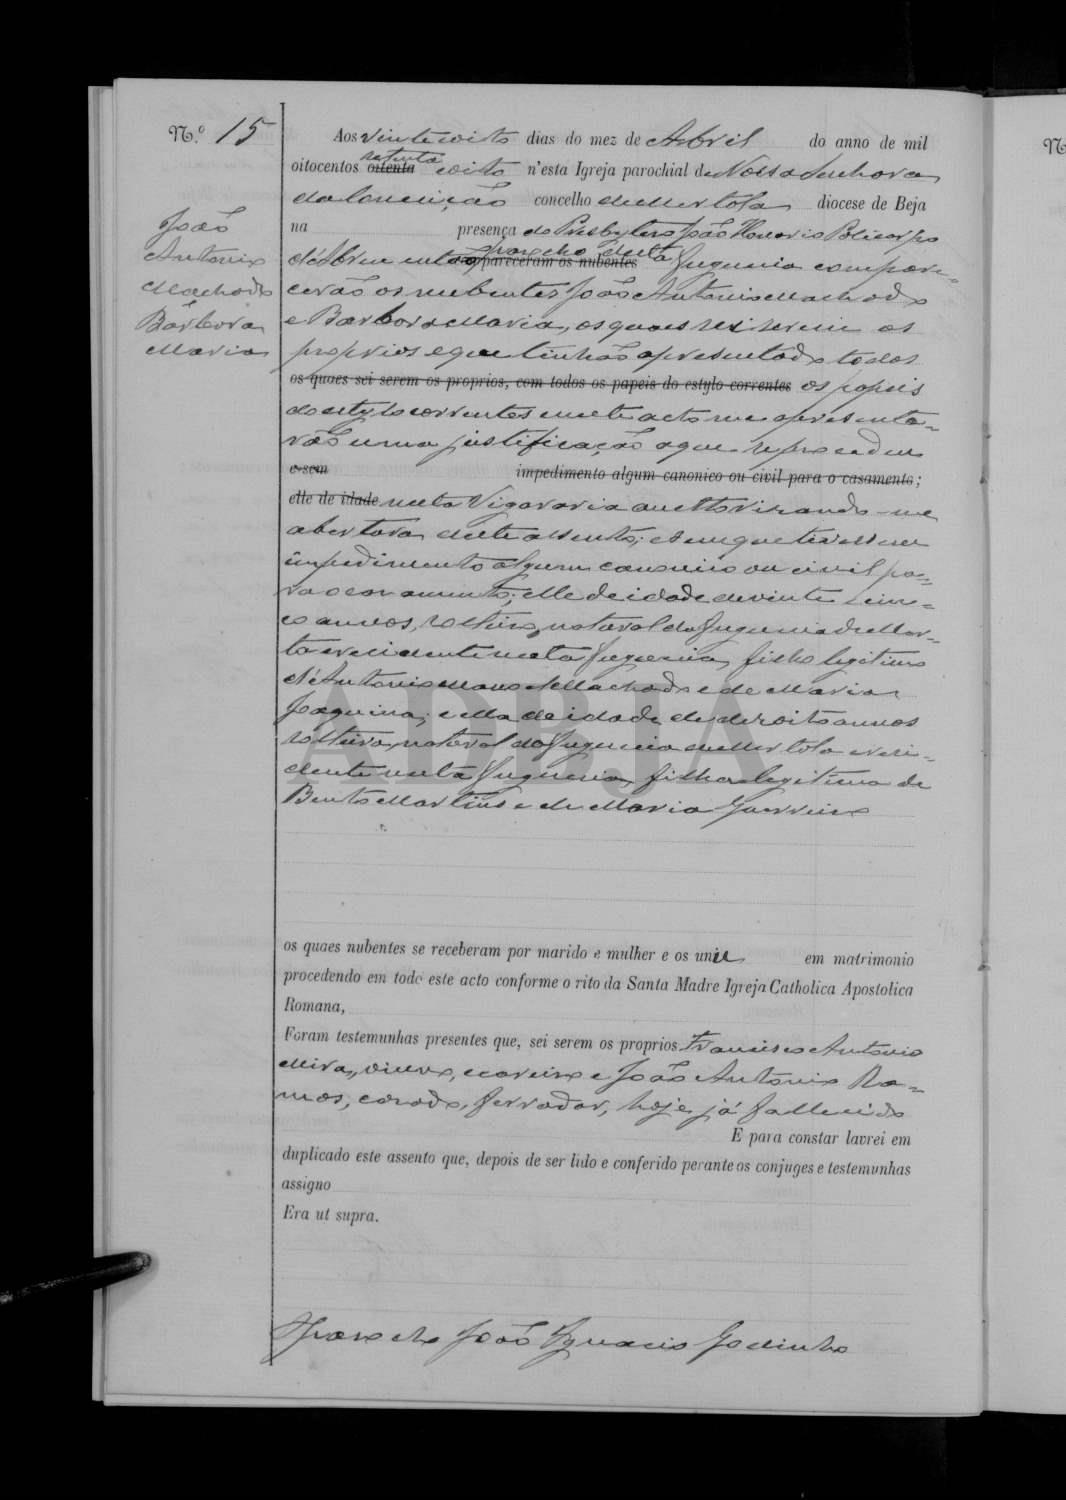 N.º 15
João
Antonio
Machado
Barbora
Maria
Aos vinte oito dias do mez de Abril do anno de mil
oitocentos oitenta setenta e oito n'esta Igreja parochial de Nossa Senhora
da Conceição concelho de Mertola diocese de Beja
na presença do Presbytero João Honorio Policarpo
d'Abreu então parocho desta compareceram os nubentes freguezia compare-
cerão os nubentes João Antonio Machado
e Barbora Maria, os quaes sei serem os
proprios e que tinhão apresentado todos
os quaes sei serem os proprios, com todos os papeis do estylo correntes os papeis
do estylo correntes e neste acto me apresenta-
rão uma justificação a que se procedeu
e sem impedimento algum canonico ou civil para o casamento;
elle de idade nesta Vigararia auctorizando-me
abertura deste assento; e sem que tivessem
impedimento algum canonico ou civil pa-
ra o casamento; elle de idade de vinte e cin-
co annos, solteiro, natural da freguezia de Mer-
tola e residente nesta freguezia, filho legitimo
d'Antonio Machado e de Maria
Joaquina; e ella de idade de dezoito annos
solteira, natural da freguezia de Mertola e resi-
dente nesta freguezia, filha legitima de
Bento Martins e de Maria Guerreiro
os quaes nubentes se receberam por marido e mulher e os unio em matrimonio
procedendo em todo este acto conforme o rito da Santa Madre Igreja Catholica Apostolica
Romana,
Foram testemunhas presentes que, sei serem os proprios Francisco Antonio
Mira, viuvo, e João Antonio Ra-
mos, casado, ferrador, hoje já fallecido
E para constar lavrei em
duplicado este assento que, depois de ser lido e conferido perante os conjuges e testemunhas
assigno
Era ut supra.
O Parocho João Ignacio Godinho
ADBJA
N